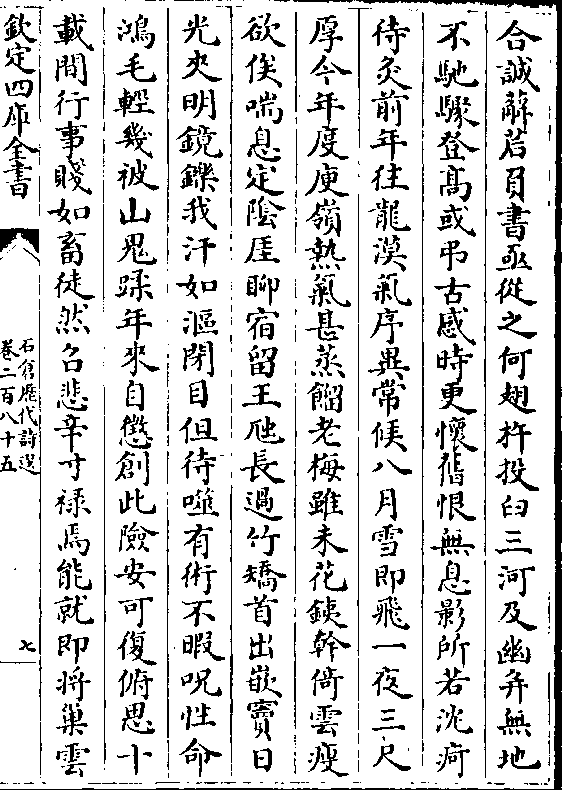 合誠辭若肩書亟從之何翅杵投臼三河及幽并無地
不馳驟登髙或弔古感時更懷舊恨無息影所若沈疴
待灸前年往龍漠氣序異常候八月雪即飛一夜三尺
厚今年度庾嶺熱氣甚蒸餾老梅雖未花鐵幹倚雲瘦
欲俟喘息定陰厓聊宿留王虺長過竹矯首出嵌竇日
光夾明鏡鑠我汗如漚閉目但待噬有術不暇呪性命
鴻毛輕幾被山鬼蹂年來自懲創此險安可復俯思十
載間行事賤如畜徒然名悲辛寸禄焉能就即将巢雲
欽定四庫全書
石倉歷代詩選
卷二百八十五
七